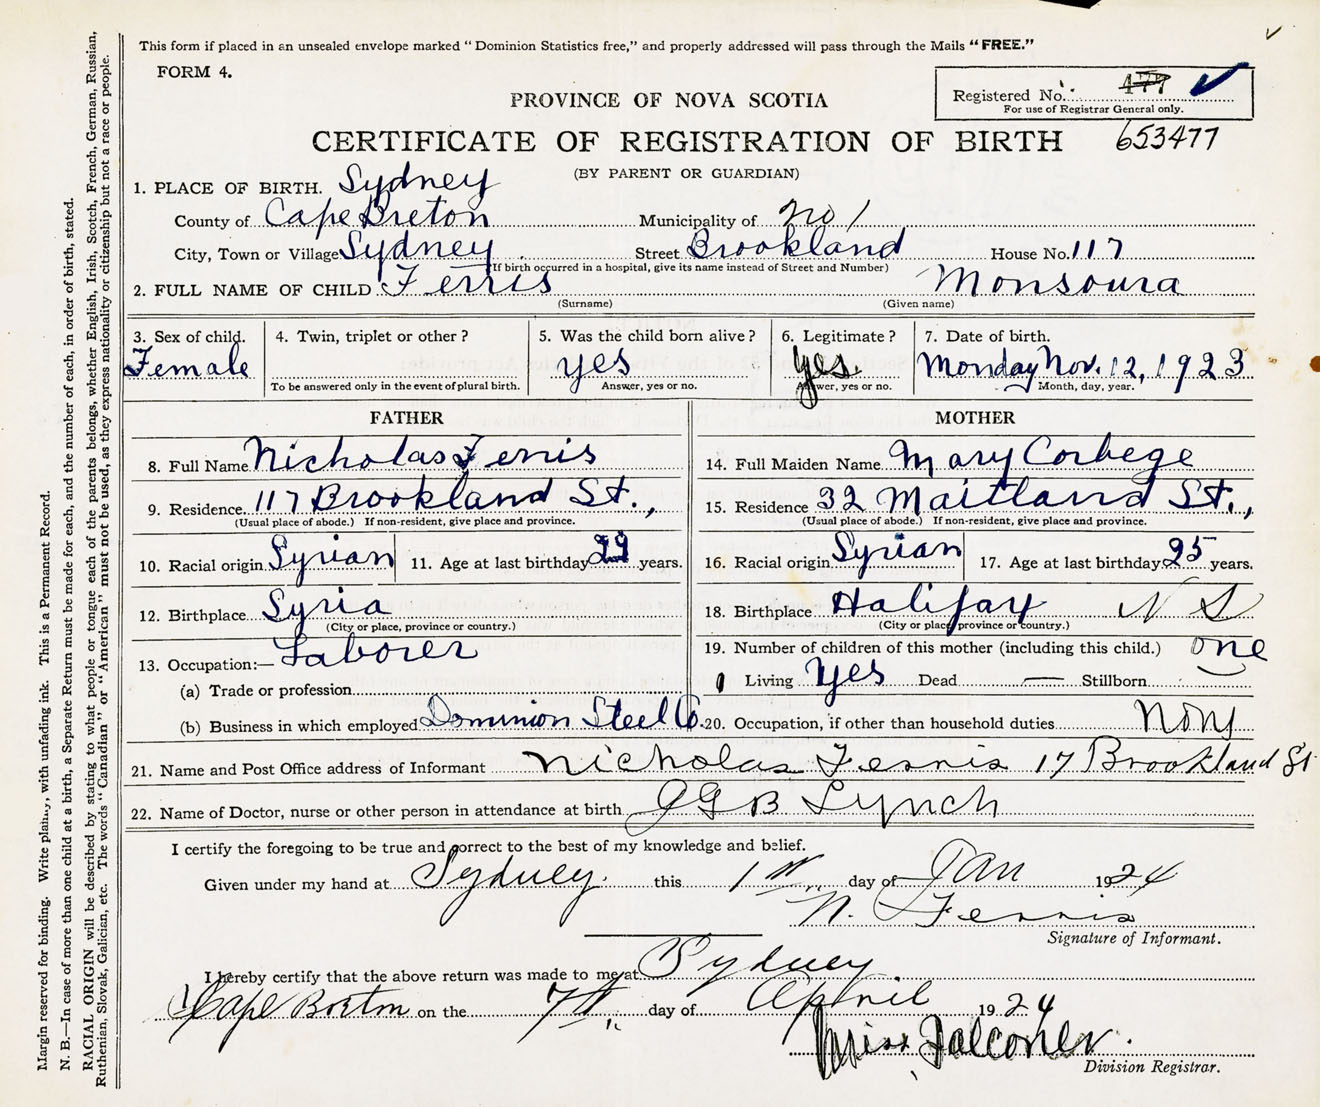 This form if placed in an unsealed envelope marked "Dominion Statistics free," and properly addressed will pass through the Mails "FREE."
FORM 4.
Registered No. 477
For use of Registrar General only.
PROVINCE OF NOVA SCOTIA
CERTIFICATE OF REGISTRATION OF BIRTH 653477
(BY PARENT OR GUARDIAN)
1. PLACE OF BIRTH. Sydney
County of Cape Breton Municipality of No 1
City, Town or Village Sydney Street Brookland House No. 117
(If birth occurred in a hospital, give its name instead of Street and Number)
2. FULL NAME OF CHILD Ferris Monsoura
(Surname) (Given name)
3. Sex of child. 4. Twin, triplet or other? 5. Was the child born alive? 6. Legitimate? 7. Date of birth.
Female yes yes. Monday Nov. 12, 1923
To be answered only in the event of plural birth. Answer, yes or no. Answer, yes or no. Month, day, year.
FATHER MOTHER
8. Full Name Nicholas Ferris 14. Full Maiden Name Mary Corbege
9. Residence 117 Brookland St., 15. Residence 32 Maitland St.,
(Usual place of abode.) If non-resident, give place and province. (Usual place of abode.) If non-resident, give place and province.
10. Racial origin Syrian 11. Age at last birthday 29 years. 16. Racial origin Syrian 17. Age at last birthday 25 years.
12. Birthplace Syria 18. Birthplace Halifax N S
(City or place, province or country.) (City or place, province or country.)
13. Occupation:— Laborer 19. Number of children of this mother (including this child.) one
(a) Trade or profession 1 Living Yes Dead — Stillborn
(b) Business in which employed Dominion Steel Co. 20. Occupation, if other than household duties
21. Name and Post Office address of Informant Nicholas Ferris 17 Brookland St
22. Name of Doctor, nurse or other person in attendance at birth JGB Lynch
I certify the foregoing to be true and correct to the best of my knowledge and belief.
Given under my hand at Sydney. this 1st day of Jan 1924
N. Ferris
Signature of Informant.
I hereby certify that the above return was made to me at Sydney.
Cape Breton on the 7th day of April 1924
Miss Falconer.
Division Registrar.
Margin reserved for binding. Write plainly, with unfading ink. This is a Permanent Record.
N. B.—In case of more than one child at a birth, a Separate Return must be made for each, and the number of each, in order of birth, stated.
RACIAL ORIGIN will be described by stating to what people or tongue each of the parents belongs, whether English, Irish, Scotch, French, German, Russian,
Ruthenian, Slovak, Galician, etc. The words "Canadian" or "American" must not be used, as they express nationality or citizenship but not a race or people.